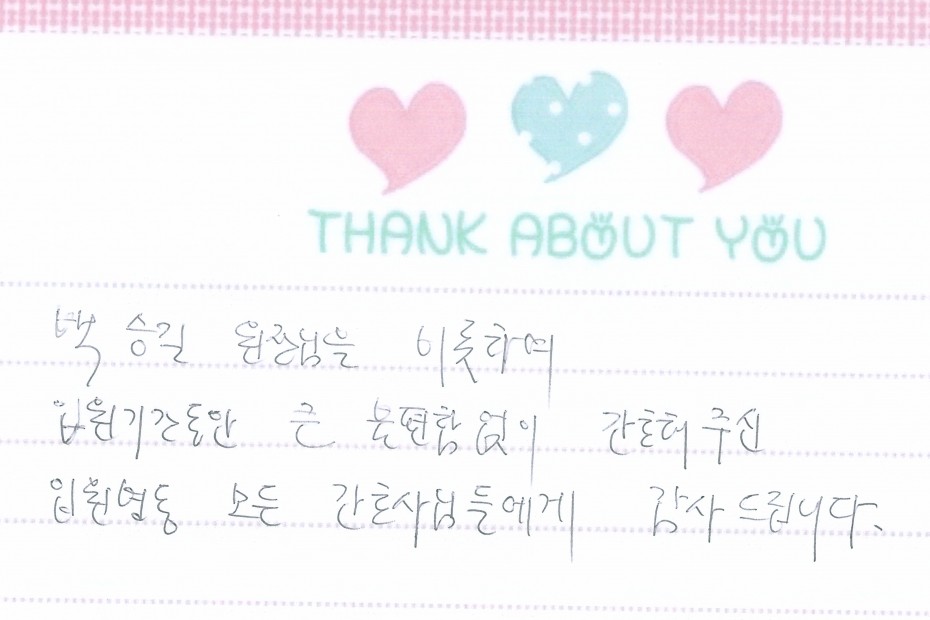 THANK ABOUT YOU
백 승길 원장님을 비롯하여
입원기간동안 큰 불편함 없이 간호해 주신
입원병동 모든 간호사님들에게 감사 드립니다.